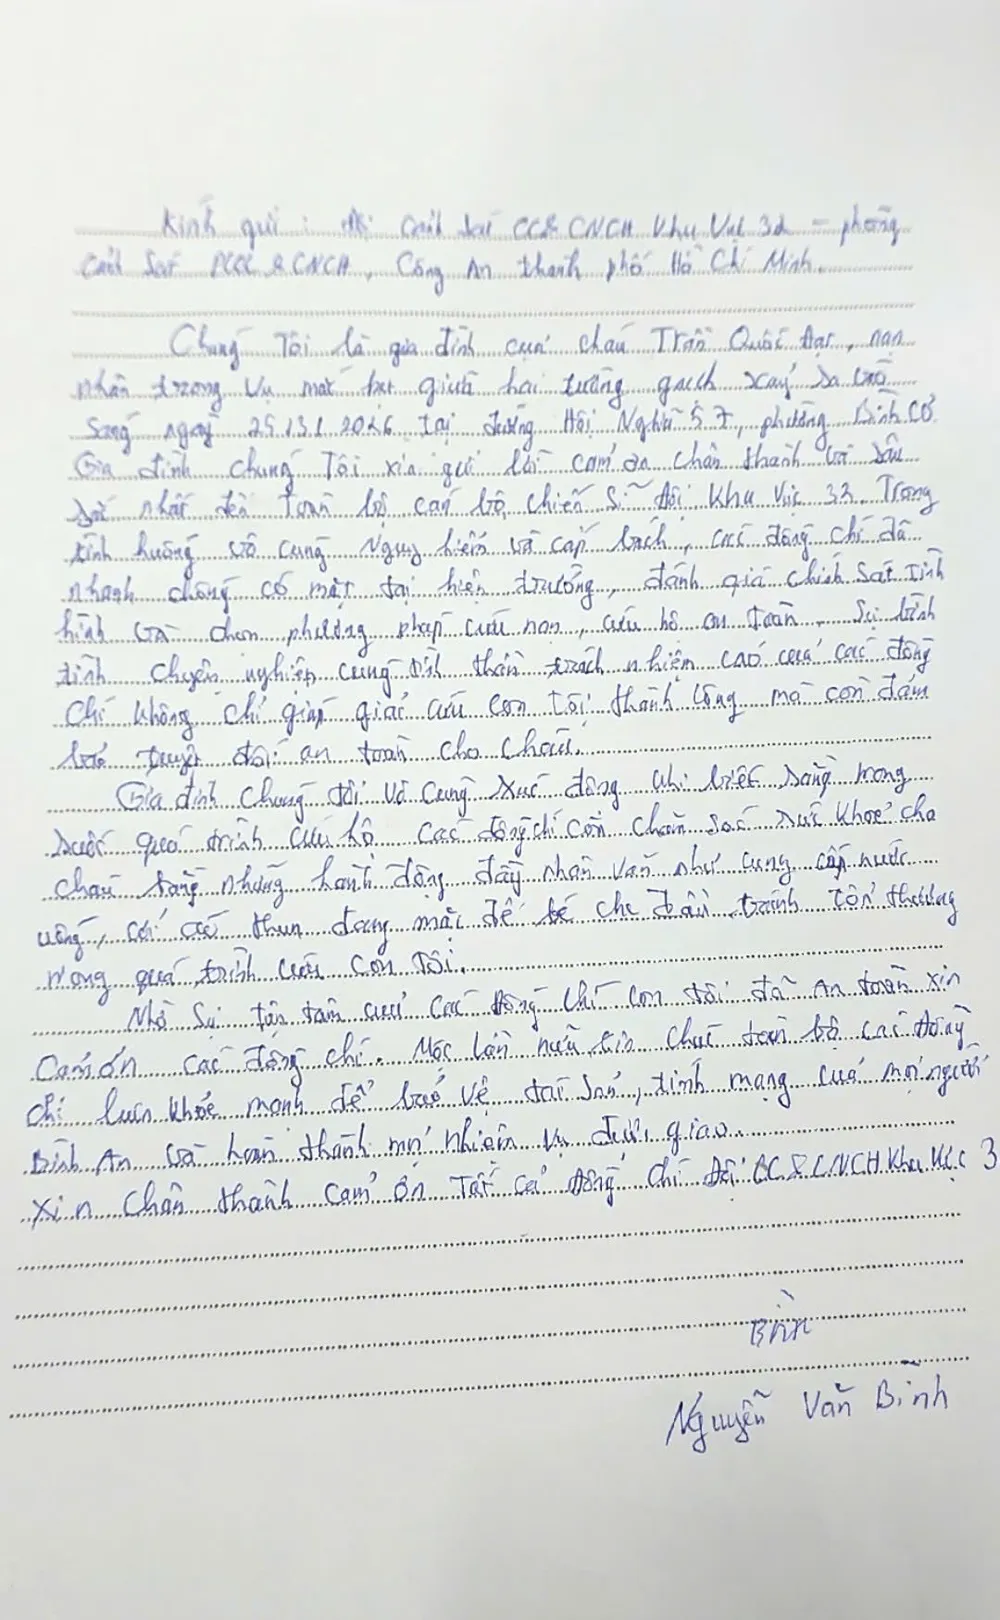 Kính gửi: Đội Cảnh Sát CC&CNCH Khu Vực 32 – phòng
Cảnh Sát PCCC &CNCH, Công An thành phố Hồ Chí Minh.
Chúng Tôi là gia đình của cháu Trần Quốc Đạt, nạn
nhân trong vụ mắc kẹt giữa hai tường gạch xảy ra vào
Sáng ngày 25/3/2026 tại đường Hội Nghĩa 57, phường Bình Cơ
Gia đình chúng Tôi xin gửi lời cảm ơn chân thành và sâu
sắc nhất đến Toàn bộ cán bộ chiến Sĩ Đội Khu Vực 32. Trong
tình huống vô cùng Nguy hiểm và cấp bách, các đồng chí đã
nhanh chóng có mặt tại hiện trường, đánh giá chính Sát Tình
hình và chọn phương pháp cứu nạn, cứu hộ an Toàn. Sự bình
tĩnh chuyên nghiệp cùng tinh thần trách nhiệm cao của các đồng
Chí không chỉ giúp giải cứu con Tôi thành Công mà còn đảm
bảo tuyệt đối an toàn cho Cháu.
Gia đình Chúng tôi Vô Cùng Xúc động khi biết Rằng trong
Suốt quá trình cứu hộ các đồng chí còn chăm Sóc Sức Khỏe cho
cháu bằng những hành động đầy nhân Văn như cung cấp nước
uống, cởi áo thun đang mặc để bé che đầu tránh tổn thương
trong quá trình cứu Con Tôi.
Nhờ Sự tận tâm của Các Đồng Chí con tôi đã An toàn xin
Cảm ơn các đồng chí. Một lần nữa xin chúc toàn bộ các đồng
chí luôn khỏe mạnh để bảo Vệ tài Sản, tính mạng của mọi người
Bình An và hoàn thành mọi nhiệm vụ được giao.
Xin Chân thành cảm ơn Tất cả Đồng Chí Đội CC&CNCH Khu Vực 3
Nguyễn Văn Bình